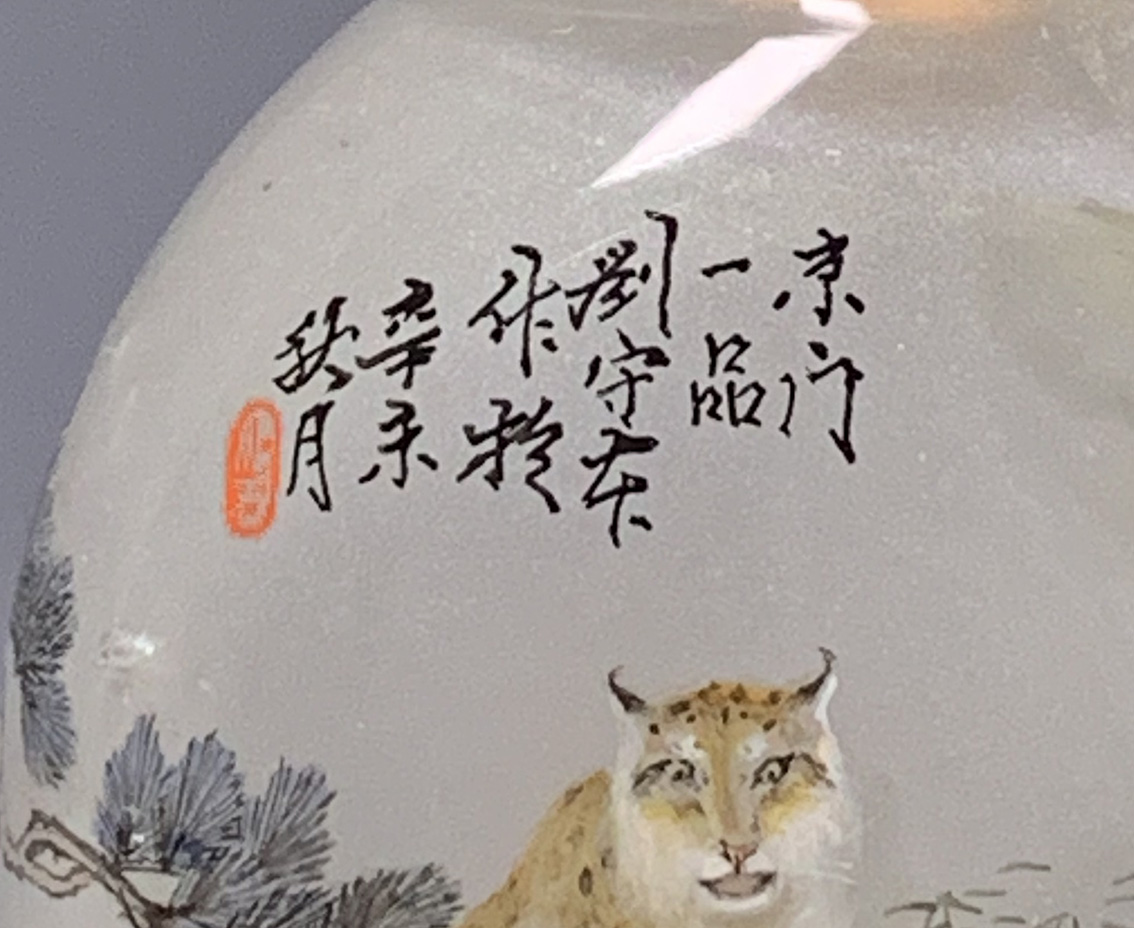 京门
一品
劉守本
作於
辛未
秋月